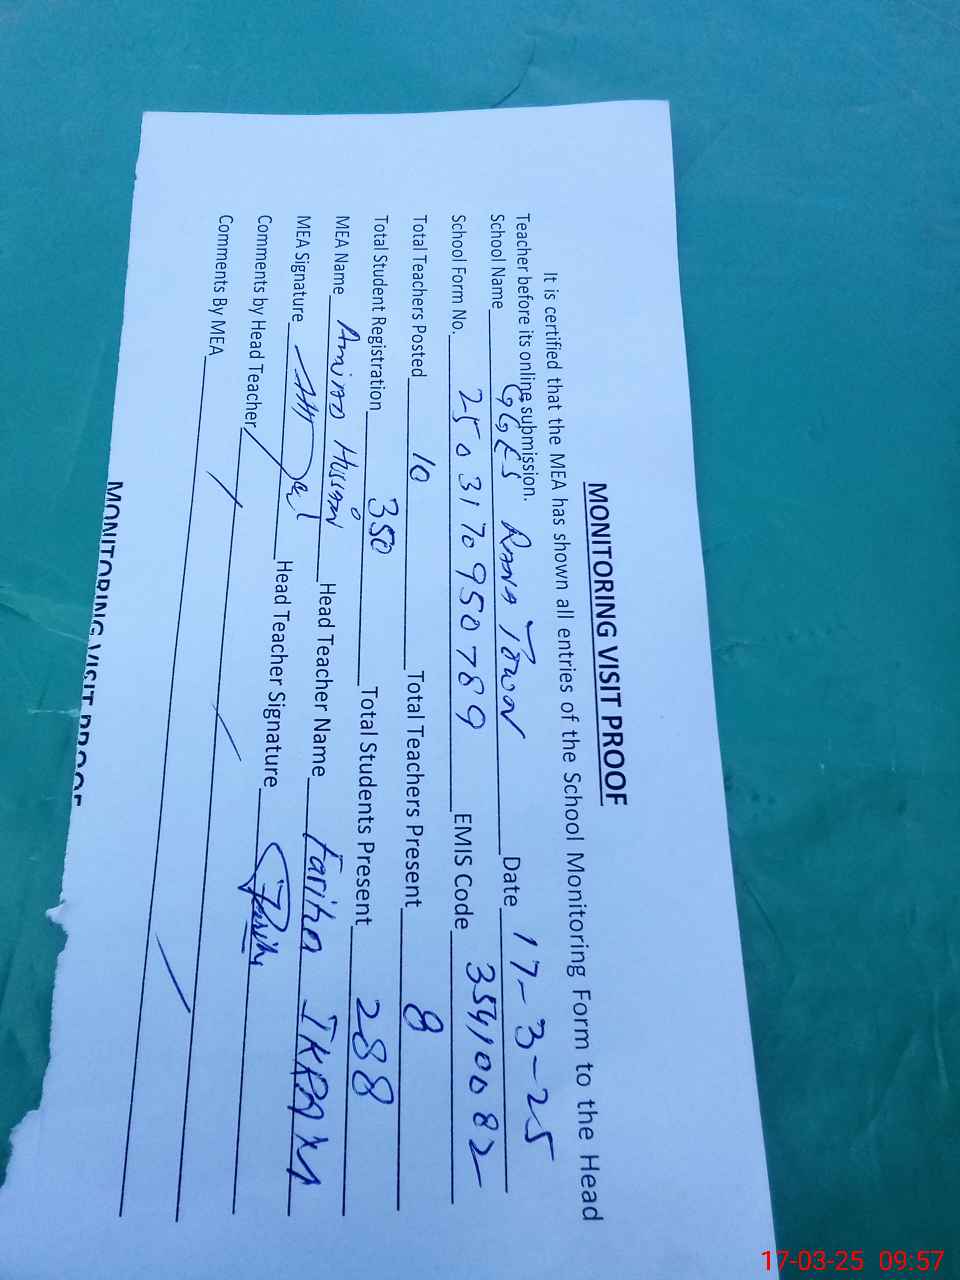 MONITORING VISIT PROOF
It is certified that the MEA has shown all entries of the School Monitoring Form to the Head
Teacher before its online submission.
School Name GGES RANA TOWN Date 17-3-25
School Form No. 2503170950789 EMIS Code 35410082
Total Teachers Posted 10 Total Teachers Present 8
Total Student Registration 350 Total Students Present 288
MEA Name Hussain Head Teacher Name Fariha IKRAM
MEA Signature Head Teacher Signature Fariha
Comments by Head Teacher
Comments By MEA
MONITORING VISIT PROOF
17-03-25 09:57